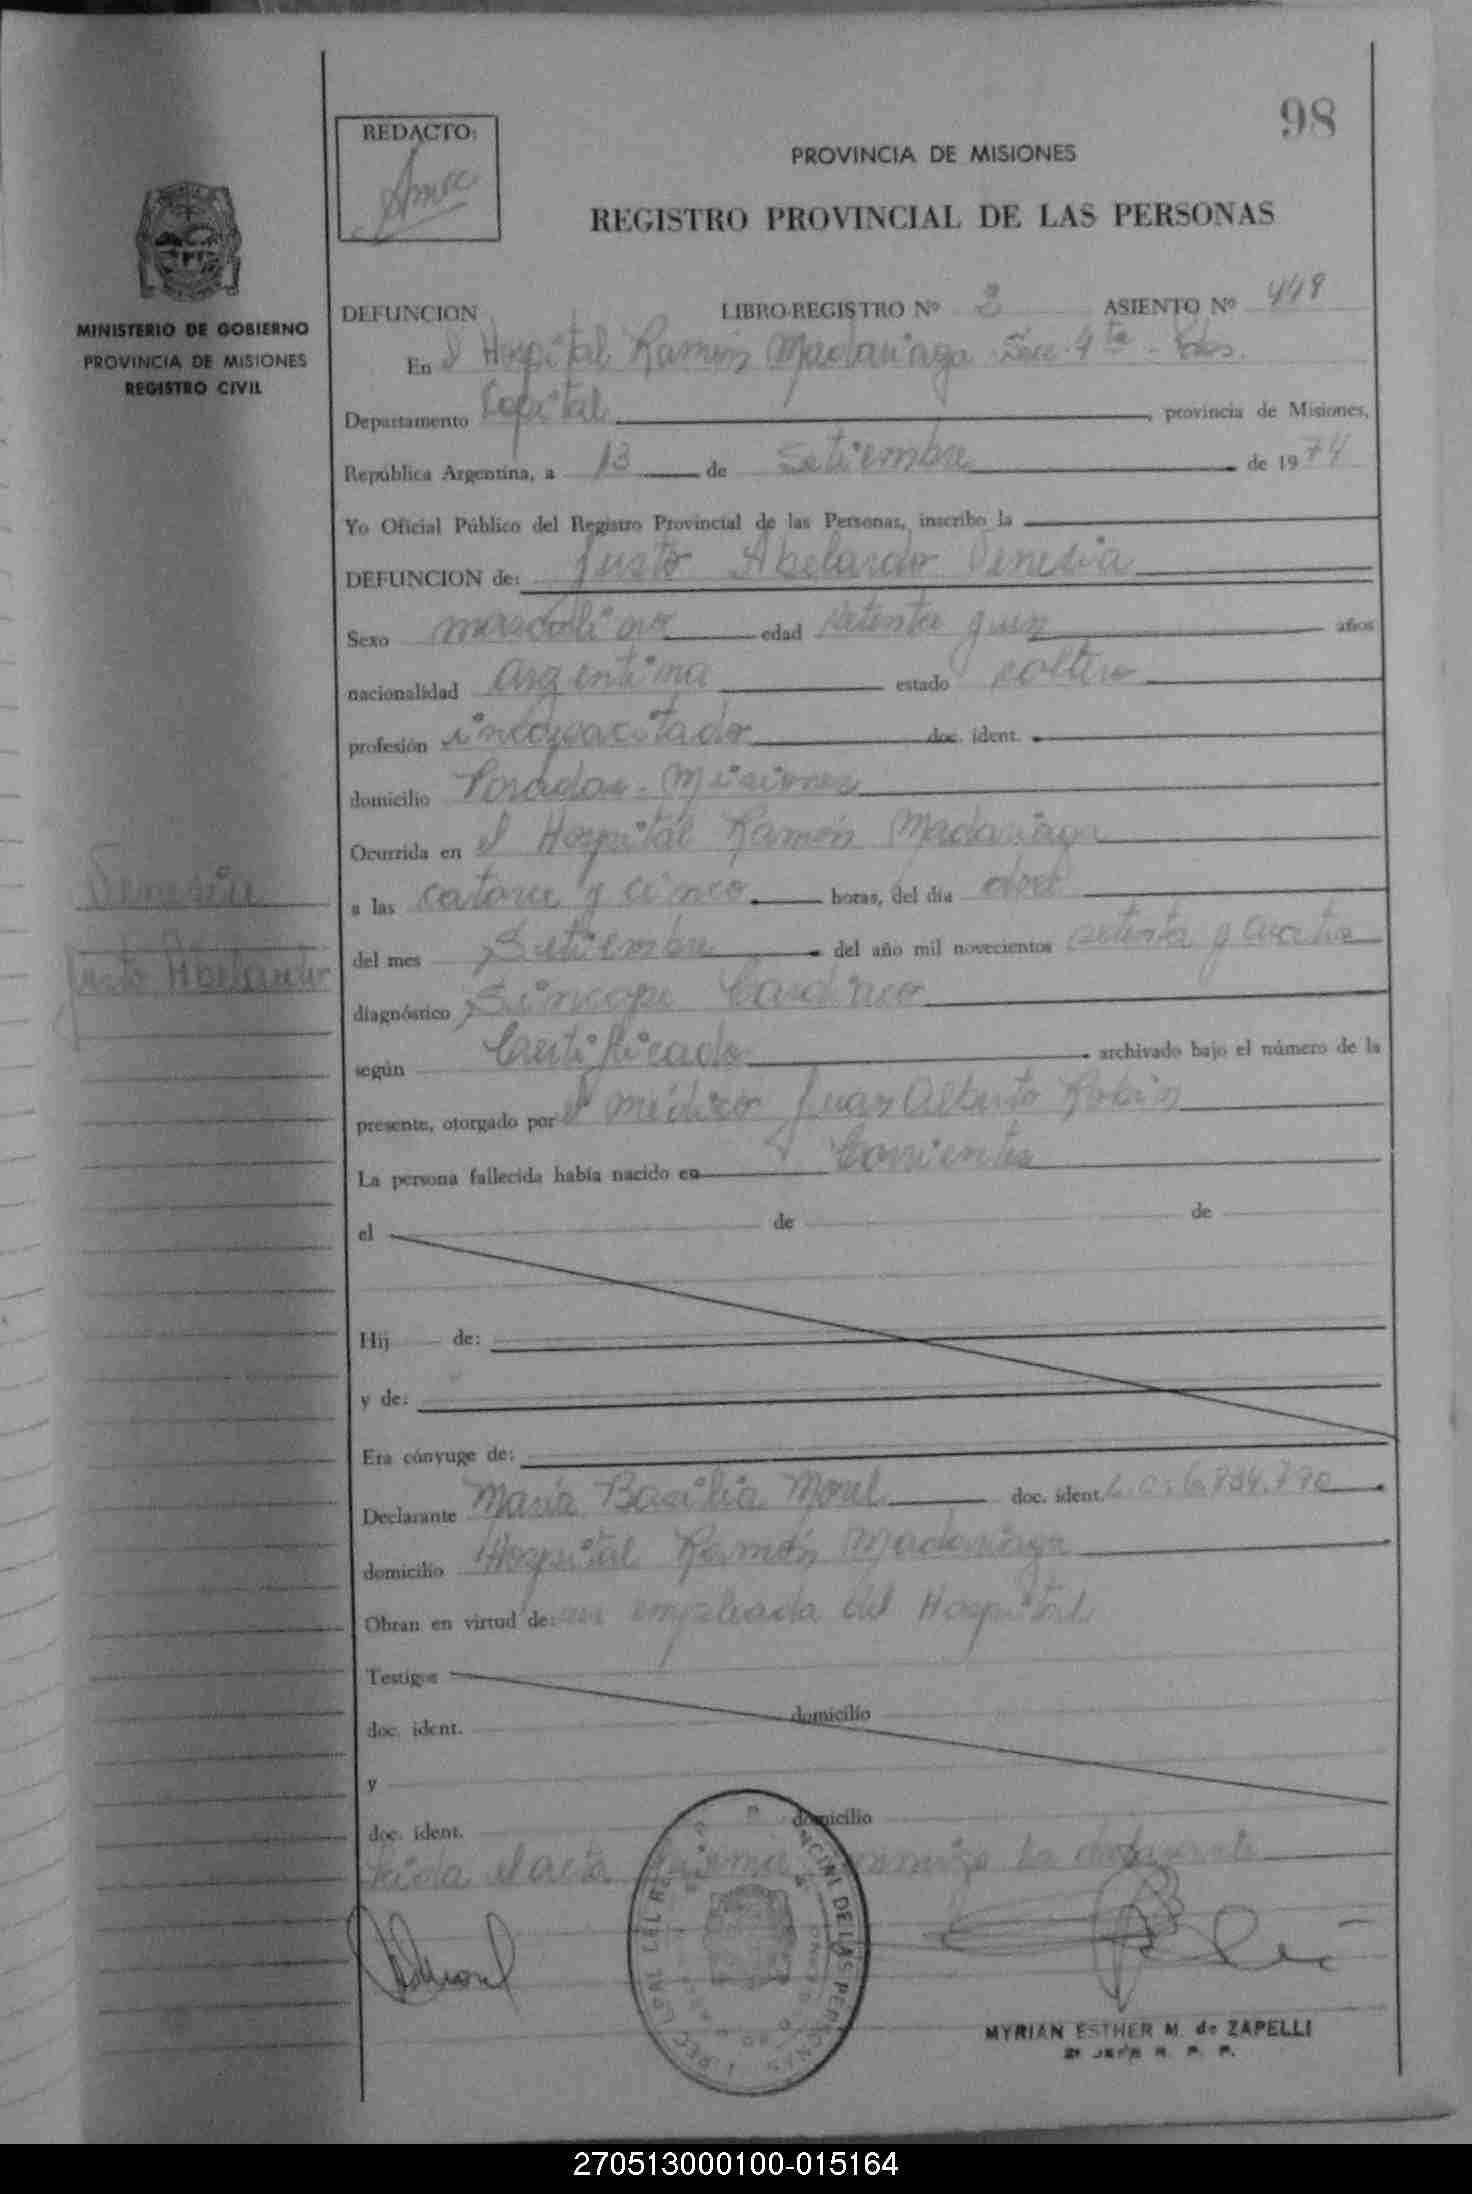 98
REDACTO:
PROVINCIA DE MISIONES
REGISTRO PROVINCIAL DE LAS PERSONAS
MINISTERIO DE GOBIERNO
PROVINCIA DE MISIONES
REGISTRO CIVIL
DEFUNCION LIBRO-REGISTRO Nº 2 ASIENTO Nº 448
En el Hospital Ramón Madariaga Secc. 4ta - Pdas.
Departamento Capital, provincia de Misiones,
República Argentina, a 13 de Setiembre de 1974
Yo Oficial Público del Registro Provincial de las Personas, inscribo la
DEFUNCION de: Justo Abelardo Venesia
Sexo masculino edad setenta y un años
nacionalidad argentina estado soltero
profesión incapacitado doc. ident.
domicilio Posadas - Misiones
Ocurrida en el Hospital Ramón Madariaga
Venesia
a las catorce y cinco horas, del día doce
Justo Abelardo
del mes Setiembre del año mil novecientos setenta y cuatro
diagnóstico Síncope Cardíaco
según Certificado archivado bajo el número de la
presente, otorgado por el médico Juan Alberto
La persona fallecida había nacido en Corrientes
el de de
Hij de:
y de:
Era cónyuge de:
Declarante María Basilia Morel doc. ident. L.C. 6.834.790
domicilio Hospital Ramón Madariaga
Obran en virtud de: ser empleada del Hospital
Testigos
doc. ident. domicilio
y
doc. ident. domicilio
Leida el acta la declarante
MYRIAN ESTHER M. de ZAPELLI
2º JEFE R. P. P.
270513000100-015164